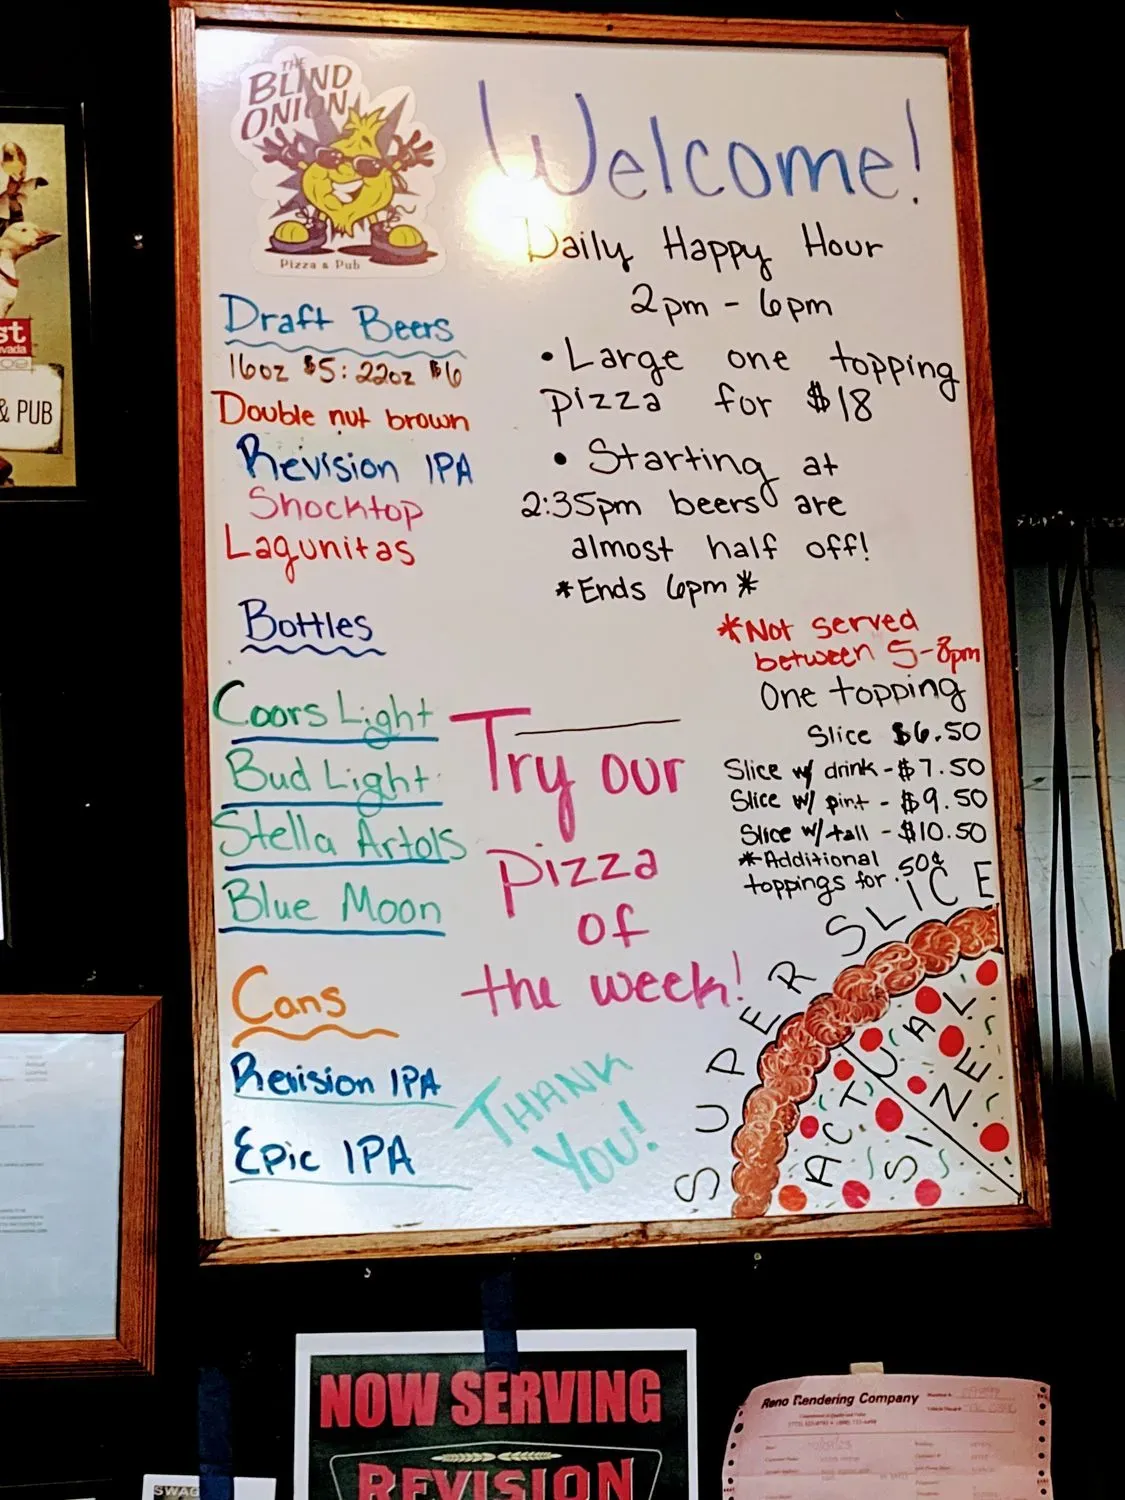 THE
BLIND
ONION
Pizza & Pub
Welcome!
Daily Happy Hour
2pm - 6pm
• Large one topping
pizza for $18
• Starting at
2:35pm beers are
almost half off!
*Ends 6pm*
Draft Beers
16oz $5: 22oz $6
Double nut brown
Revision IPA
Shocktop
Lagunitas
Bottles
Coors Light
Bud Light
Stella Artois
Blue Moon
Cans
Revision IPA
Epic IPA
Try our
pizza
of
the week!
THANK
YOU!
*Not served
between 5-8pm
One topping
Slice $6.50
Slice w/ drink - $7.50
Slice w/ pint - $9.50
Slice w/ tall - $10.50
*Additional
toppings for .50¢
SUPER SLICE
ACTUAL
SIZE
st
& PUB
NOW SERVING
REVISION
SWAG
Reno Rendering Company